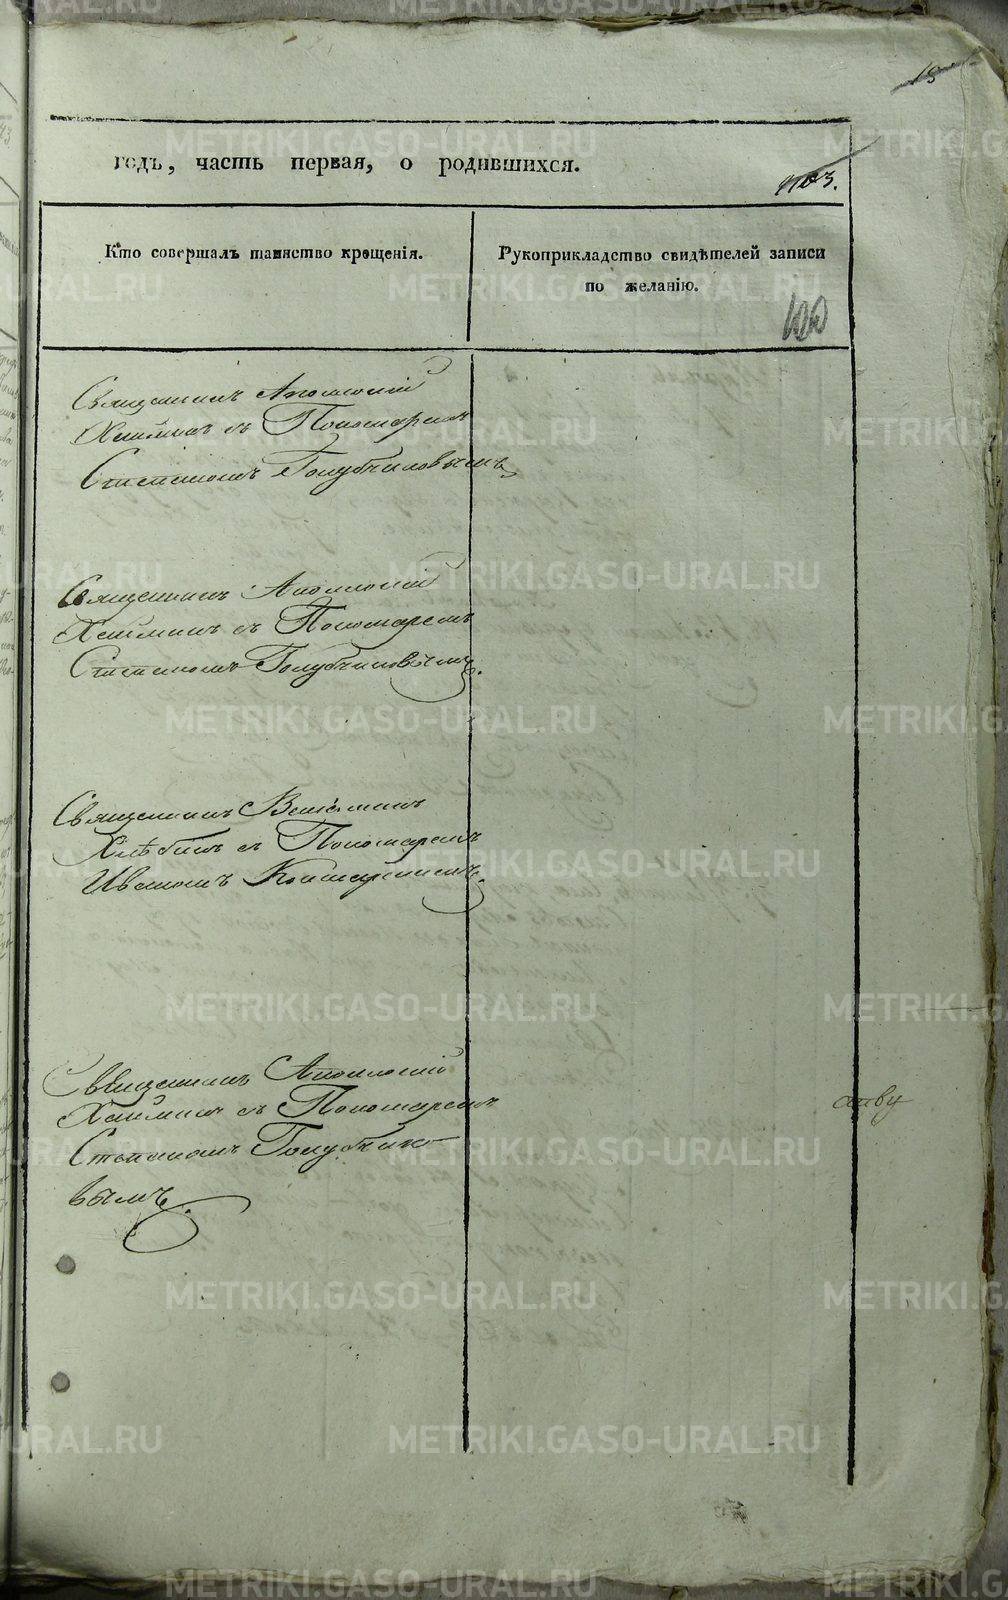 18
годъ, часть первая, о родившихся.
1103.
Кто совершалъ таинство крещенія.
Рукоприкладство свидѣтелей записи по желанію.
100
Священникъ Аполлоній
съ Пономаремъ
Степаномъ Голубчиковымъ
Священникъ Аполлоній
съ Пономаремъ
Степаномъ Голубчиковымъ.
Священникъ Веніаминъ
Хлѣбинъ съ Пономаремъ
Иваномъ
Священникъ Аполлоній
съ Пономаремъ
Степаномъ Голубчико
вымъ.
METRIKI.GASO-URAL.RU